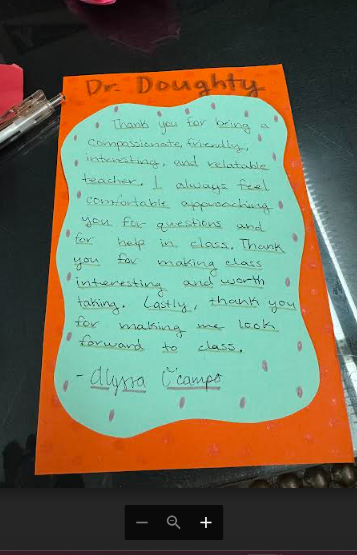 Dr. Doughty
Thank you for being a
compassionate, friendly,
interesting, and relatable
teacher. I always feel
comfortable approaching
you for questions and
for help in class. Thank
you for making class
interesting and worth
taking. Lastly, thank you
for making me look
forward to class.
- Alyssa Ocampo